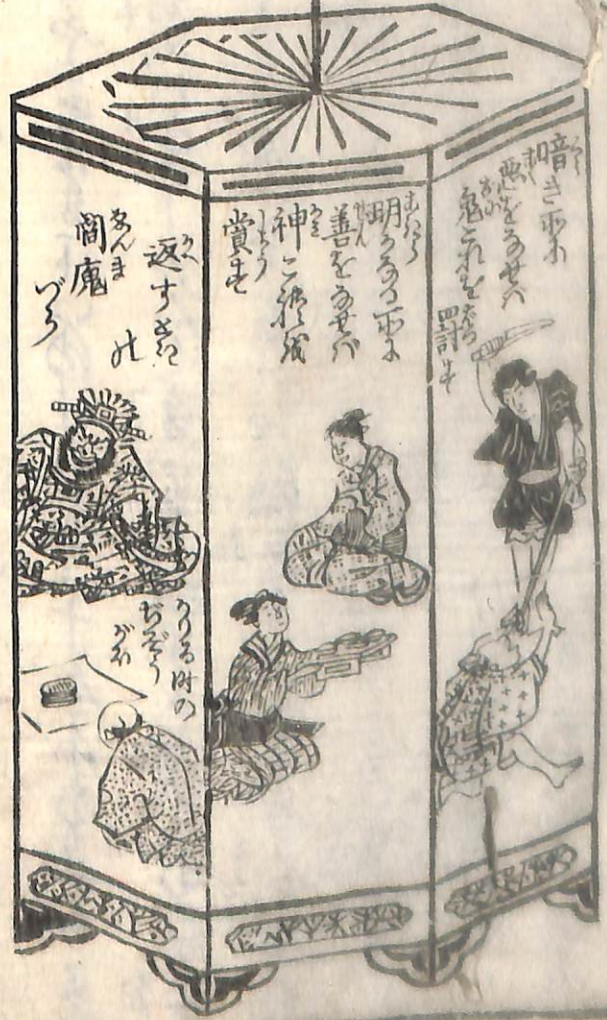 暗き所に
悪をなせば
鬼これを
罰す
明らかなる所に
善をなせば
神これを
賞す
返すときは
の
閻魔
づら
かりる時の
ぢぞう
がほ